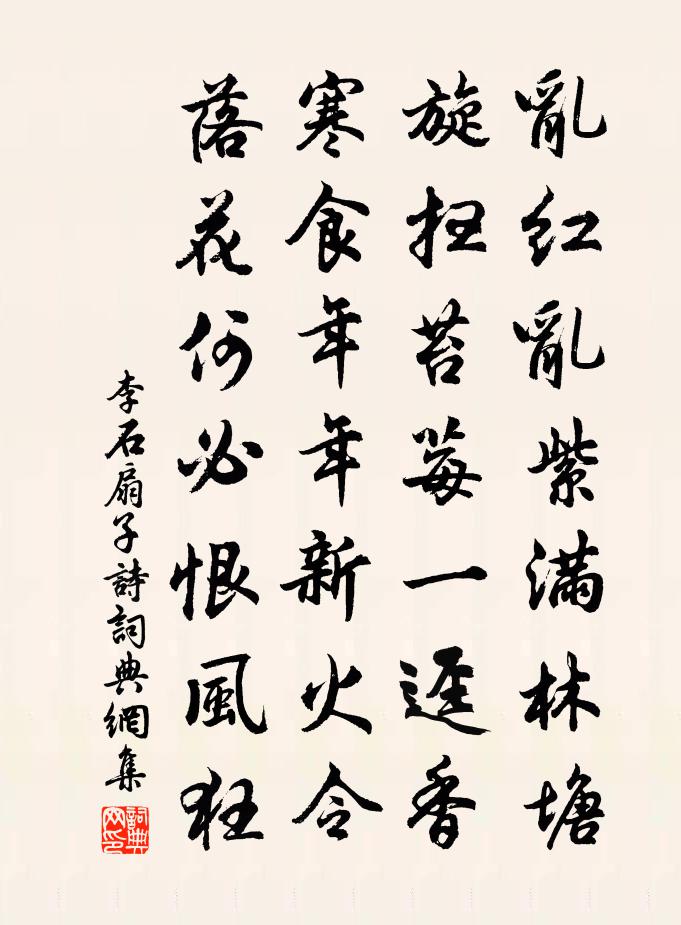 亂紅亂紫滿林塘
旋掃苔莓一逕香
寒食年年新火令
落花何必恨風狂
李石扇子詩詞典網集
詞典网印